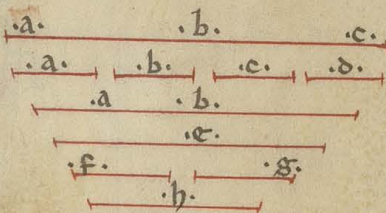 .a. .b. .c.
.a. .b. .c. .d.
.a .b.
.e.
.f. .g.
.h.